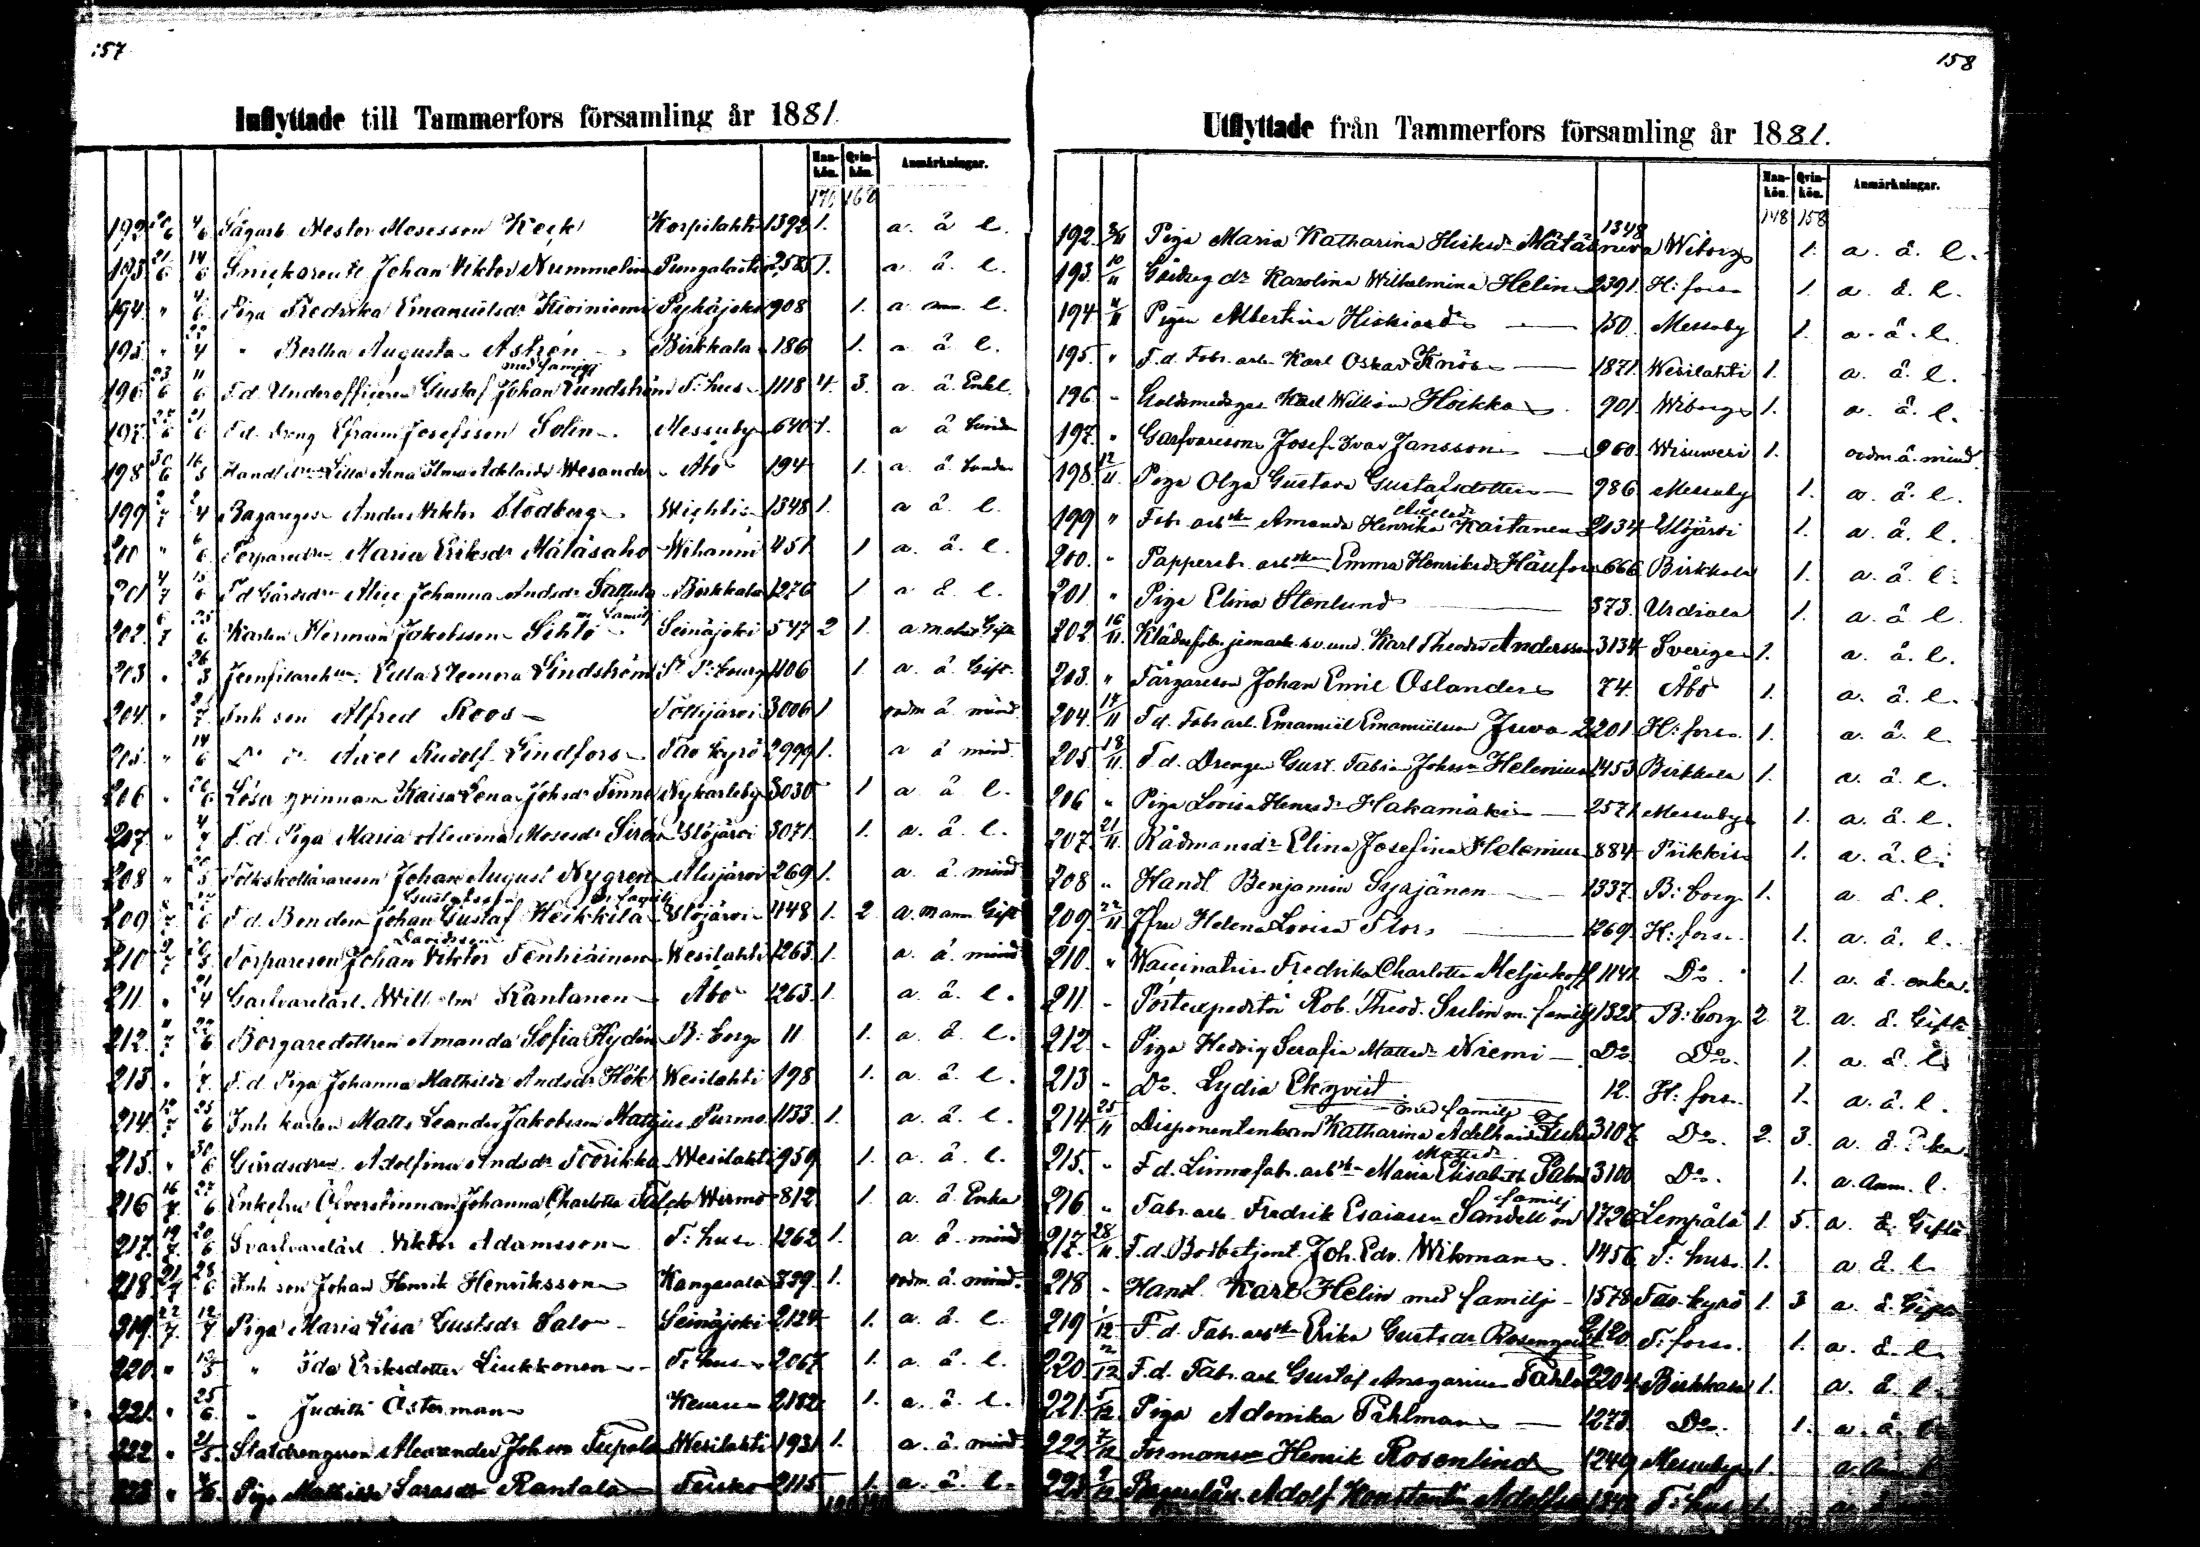 157
Inflyttade till Tammerfors församling år 1881
Man-kön. Qvin-kön. Anmärkningar.
170 168
192 20/6 4/6 Sågarb Nestor Mosesson Keck Korpilahti 1392 1. a. å l.
193 21/6 14/6 Johan Viktor Nummelin Pungalaitio 2585 1. a. å. l.
194 " 4/6 Piga Fredrika Emanuelsdr Kiviniemi Pyhäjoki 908 1. a ann. l.
195 " 22/4 " Bertha Augusta Astrén Birkkala 186 1. a å l.
med familj
196 23/6 11/6 F.d. Underofficeren Gustaf Johan Lundström T:hus 1118 4. 3. a. å. Enkl.
197. 25/6 21/6 F.d. dreng Efraim Josefsson Solin Messuby 640 1. a å
198 30/6 16/5 Ulla Anna Ilma Adelaide Wesander Åbo 194 1. a. å.
199 2/7 2/4 Bagareges. Anders Viktor Stodberg Wichtis 1348 1. a å l.
200 " 6/6 Torparedr. Maria Eriksdr Mätäsaho Wihanni 451 1 a. å. l.
201 4/7 15/6 F d Gårdsdr Alice Johanna Andsdr Birkkala 1276 1 a å l.
m. familj
202. 6/7 25/6 Karlen Herman Jakobsson Sihto Seinäjoki 547 2 1. a. Gift
203 " 26/3 Ulla Eleonora Lindström St P:bourg 1106 1 a. å. Gift.
204. " 2/7 Inh son Alfred Roos Töllijärvi 3006 1. ordm å mind
205 " 14/6 Do do Axel Rudolf Lindfors Tav kyrö 2999 1. a å mind
206 " 26/6 Lösa qvinnan Kaisa Lena Johsdr Finne Nykarleby 3030 1 a å l.
207 " 4/7 F.d. Piga Maria Alexandra Mosesdr Sirén Ylöjärvi 3071. 1. a. å. l.
208 " 20/5 Johan August Nygren Alajärvi 269 1. a. å. mind
Gustafsson m familj
209 F.d. Bonden Johan Gustaf Heikkilä Ylöjärvi 1148 1. 2 a. mann Gift
Davidsson
210 Torpareson Johan Viktor Tenhiäinen Wesilahti 1263. 1. a å. mind
211. " 21/4 Garfvarelärl. Wilhelm Rantanen Åbo 1263. 1. a. å. l.
212. 11/7 22/6 Borgaredottren Amanda Sofia Hydén B:borg 11 1. a. å. l.
213. " F.d. Piga Johanna Mathilda Andsdr Hök Wesilahti 198 1. a. å. l.
214. 12/7 25/6 Inh karlen Matts Leander Jakobsson Purmo 1133 1. a. å. l.
215. " 30/6 Gårdsdr. Adolfina Andsdr Toorikka Wesilahti 959. 1. a. å. l.
216 16/7 27/6 Enkefru Öfverstinnan Johanna Charlotta Falck Wirmo 812. 1. a. å. Enka
217. 19/7 20/6 Svarfvarelärl. Viktor Adamsson T:hus 1262 1. a å mind
218 21/7 28/6 Inh son Johan Henrik Henriksson Kangasala 739. 1. ordm. å. mind.
219. 22/7 12/7 Piga Maria Lisa Gustsdr Salo Seinäjoki 2124 1. a. å. l.
220. " " Ida Eriksdotter Liukkonen T:hus 2067 1. a. å. l.
221. " 25/6 " Judith Österman Keuru 2182 1. a. å. l.
222. " 21/5 Statdrengsson Alexander Johsson Wesilahti 1931 1. a. å. mind
223 " Piga Mathilda Sarasdr Rantala Teisko 2115 1. a. å. l.
158
Utflyttade från Tammerfors församling år 1881.
Man-kön. Qvin-kön. Anmärkningar.
148 158
192. Piga Maria Katharina Hisksdr Mätäsneva 1348 Wiborg 1. a. å. l.
193 10/11 Karolina Wilhelmina Helin 2391. H:fors 1. a. å. l.
194 11/11 Pigan Albertina Hiskiasdr 150. Messuby 1. a. å. l.
195. " F.d. Fabr. arb. Karl Oskar Knös 1871. Wesilahti 1. a. å. l.
196. " Guldsmedsges. Karl William Hoikka 901. Wiborg 1. a. å. l.
197. " Garfvareson Josef Ivar Jansson 960. Wisuwesi 1. ordm. å. mind.
198. 12/11 Piga Olga Gustava Gustafsdotter 986 Messuby 1. a. å. l.
199 " Fabr. arbskn Amanda Henrika Kaitanen 2034 Ylöjärvi 1. a. å. l.
200. " Pappersbr. arbskn Emma Henriksdr Hällfors 666 Birkkala 1. a. å. l.
201 " Piga Elina Stenlund 373. Urdiala 1. a. å l.
202. 16/11 Karl Theodor Andersson 3134 Sverige 1. a. å. l.
203. " Färgareson Johan Emil Oslander 74. Åbo 1. a. å. l.
204. 17/11 F.d. Fabr arb. Emanuel Emanuelsson Juva 2201 H:fors. 1. a. å. l
205 18/11 F.d. Drengen Gust. Fabian Johsson Helenius 1453 Birkkala 1. a. å. l.
206 " Piga Lovisa Henrsdr Hakamäki 2571 Messuby 1. a. å. l.
207 21/11 Rådmansdr Elina Josefina Helenius 884 Piikkis 1. a. å. l.
208 " Handl. Benjamin Syrjänen 1337. B:borg 1. a. å. l.
209 22/11 Jfru Helena Lovisa Flor 1269. H:fors. 1. a. å. l.
210. " Vaccinatris Fredrika Charlotta Meljerkoff 1142 Do. 1. a. å. enka.
211 " Postexpeditör Rob. Theod. Sulin m. familj 1325 B:borg 2 2. a. å. Gifta
212. " Piga Hedvig Serafia Mattsdr Niemi Do. Do. 1. a. å. l
213 " Do. Lydia Ekqvist 12. H:fors. 1. a. å. l.
med familj
214 25/11 Disponentenkan Katharina Adelhaide 3107 Do. 2. 3. a. å.
Mattsdr
215. " F.d. Linnefabr. arbsk Maria Elisabeth 3100 Do. 1. a. Anm. l.
familj
216 " Fabr. arb. Fredrik Esaiasson Sandell m 1726 Lempäälä 1. 5. a. å. Gifta
217. 28/11 F.d. Bodbetjent Joh. Edv. Wikman 1456 T:hus 1. a å. l
218 " Handl Karl Helin med familj 1578 Tav.kyrö 1. 3 a å Gifta
219 1/12 F.d. Fabr. arbskn Erika Gustsdr 2120 T:fors. 1. a. å. l.
220. 2/12 F.d. Fabr. arb. Gustaf Ansgarius 2204 Birkkala 1. a. å. l.
221. 5/12 Piga Adonika Påhlman 1273. Do. 1. a. å. l.
222 7/12 Formansson Henrik Rosenlind 1249 Messuby 1. a. Anm l
223 9/12 Adolf Konstantin T:hus 1.